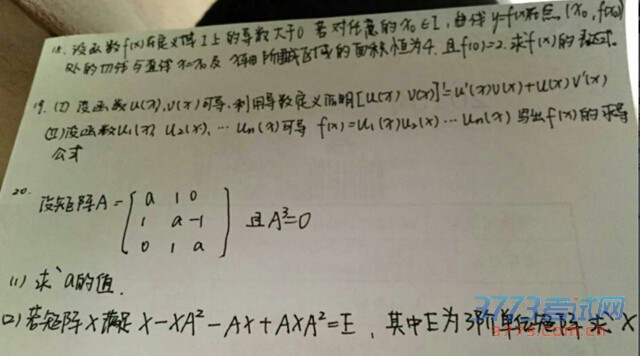 18. 设函数f(x)在定义域I上的导数大于0 若对任意的x₀∈I,曲线y=f(x)在点(x₀, f(x₀))
处的切线与直线x=x₀及x轴所围成区域的面积恒为4. 且f(0)=2. 求f(x)的表达式.
19. (1) 设函数u(x), v(x)可导. 利用导数定义证明[u(x) v(x)]'=u'(x)v(x)+u(x)v'(x)
(II)设函数u₁(x) u₂(x), … uₙ(x)可导 f(x)=u₁(x)u₂(x)…uₙ(x) 写出f(x)的求导
公式
20. 设矩阵A= a 1 0 且A³=0
1 a -1
0 1 a
(1) 求a的值.
(2) 若矩阵X满足 X-XA²-AX+AXA²=E , 其中E为3阶单位矩阵 求X
3773考试网